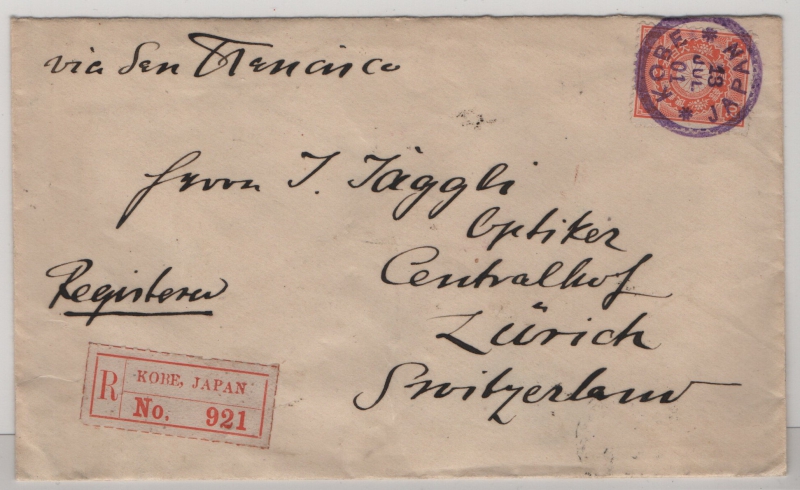 via San Francisco
KOBE * JAPAN *
13
JUL
01
Herrn J. Jäggli
Optiker
Centralhof
Zürich
Switzerland
Registered
R
KOBE, JAPAN
No. 921